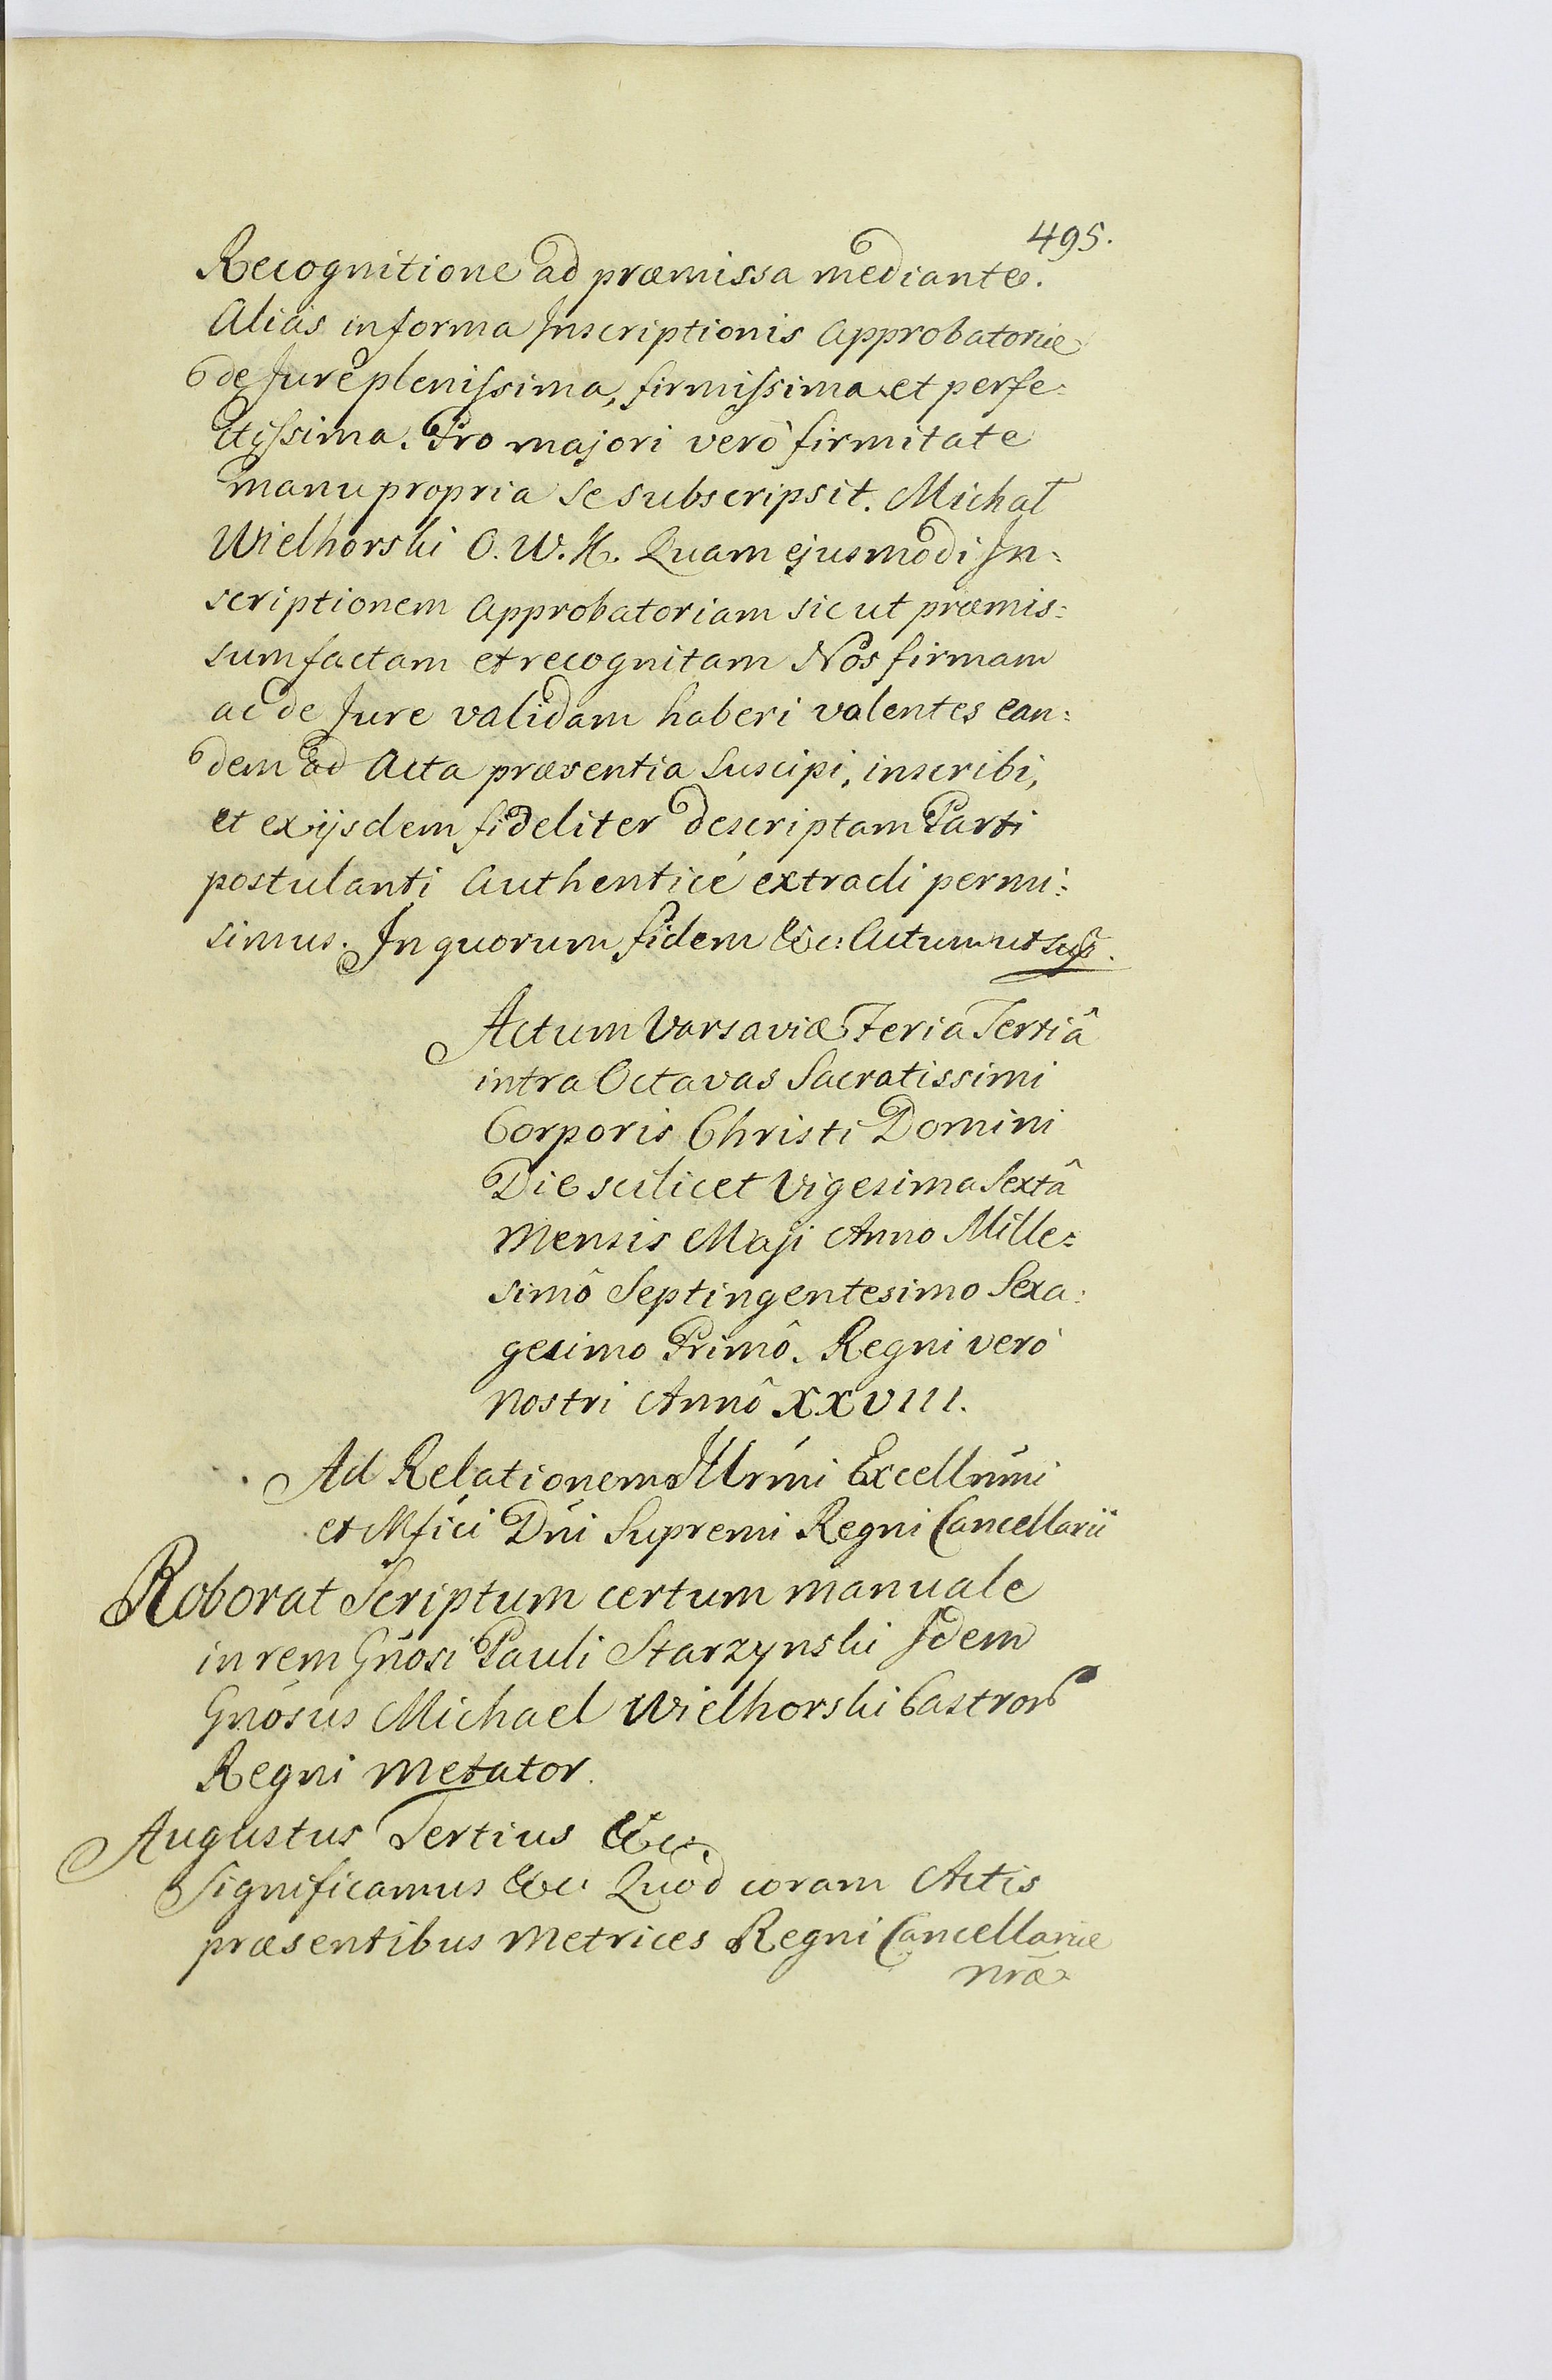 495.
Recognitione ad præmissa mediante.
Aliàs in forma Inscriptionis Approbatoriæ
de Jure plenissima, firmissima et perfe:
ctissima. Pro majori verò firmitate
manu propria se subscripsit. Michał
Wielhorski O. W. K. Quam ejusmodi In:
scriptionem Approbatoriam sic ut præmis:
sum factam et recognitam Nos firmam
ac de Jure validam haberi volentes ean:
dem ad Acta præsentia suscipi, inscribi,
et ex ijsdem fideliter descriptam Parti
postulanti Authenticè extradi permi:
simus. In quorum fidem &c: Actum ut sup.
Actum Varsaviæ Feria Tertiâ
intra Octavas Sacratissimi
Corporis Christi Domini
Die scilicet Vigesima Sextâ
Mensis Maji Anno Mille:
simô Septingentesimo Sexa:
gesimo Primô. Regni verò
nostri Annô XXVIII.
Ad Relationem Illrmi Excellrmi
et Mfici Dni Supremi Regni Cancellarii
Roborat Scriptum certum manuale
in rem Gnosi Pauli Starzynski Idem
Gnosus Michael Wielhorski Castror
Regni Metator.
Augustus Tertius &c.
Significamus &c. Quod coram Actis
præsentibus Metrices Regni Cancellariæ
nræ